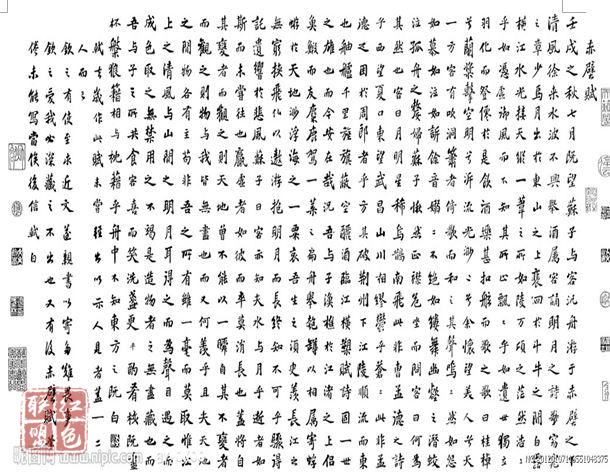 赤壁賦
壬戌之秋七月既望蘇子與客泛舟游于赤壁之下
清風徐来水波不興舉酒属客誦明月之詩歌窈窕
之章少焉月出於東山之上裴回於斗牛之間白露
橫江水光接天縱一葦之所如陵萬頃之茫然浩浩
乎如馮虛御風而不知其所止飄飄乎如遺世獨立
羽化而登僊於是飲酒樂甚扣舷而歌之歌曰桂棹
兮蘭槳擊空明兮泝流光渺渺兮余懷望美人兮天
一方客有吹洞簫者倚歌而和之其聲嗚嗚然如怨
如慕如泣如訴餘音嫋嫋不絕如縷舞幽壑之潛蛟
泣孤舟之嫠婦蘇子愀然正襟危坐而問客曰何為
其然也客曰月明星稀烏鵲南飛此非曹孟德之詩
乎西望夏口東望武昌山川相繆鬱乎蒼蒼此非孟
德之困於周郎者乎方其破荊州下江陵順流而東
也舳艫千里旌旗蔽空釃酒臨江橫槊賦詩固一世
之雄也而今安在哉況吾與子漁樵於江渚之上侶
魚鰕而友麋鹿駕一葉之扁舟舉匏樽以相屬
寄蜉蝣於天地渺浮海之一粟哀吾生之須臾羨長江之
無窮挾飛仙以遨遊抱明月而長終知不可乎驟得
託遺響於悲風蘇子曰客亦知夫水與月乎逝者如
斯而未嘗往也贏虛者如彼而卒莫消長也蓋將自
其變者而觀之則天地曾不能以一瞬自其不變者
而觀之則物與我皆無盡也而又何羨乎且夫天地
之間物各有主苟非吾之所有雖一毫而莫取惟江
上之清風與山間之明月耳得之而為聲目遇之而
成色取之無禁用之不竭是造物者之無盡藏也而
吾與子之所共食客喜而笑洗盞更酌肴核既盡
杯盤狼籍相與枕藉乎舟中不知東方之既白
軾去歲作此賦未嘗輕出以示人見者蓋一二
人而已
欽之有使至求近文遂親書以寄多難畏事
欽之愛我必深藏之不出也又有後赤壁賦筆
倦未能寫當俟後信軾白
紅色
聯盟